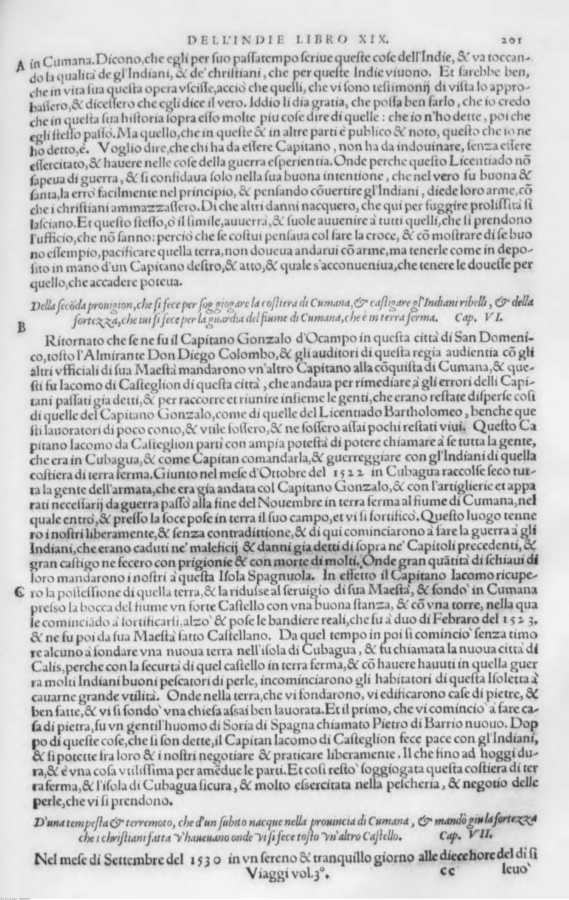 DELL'INDIE LIBRO XIX. 201
A in Cumana. Dicono, che egli per suo passatempo scriue queste cose dell'Indie, & va toccan-
do la qualità de gl'Indiani, & de' christiani, che per queste Indie viuono. Et sarebbe ben,
che in vita sua questa opera vscisse, acciò che quelli, che vi sono testimonij di vista lo appro-
bassero, & dicessero che egli dice il vero. Iddio li dia gratia, che possa ben farlo, che io credo
che in questa sua historia sopra esso molte piu cose dire di quelle: che io n'ho dette, poi che
egli stesso passò. Ma quello, che in queste & in altre parti è publico & noto, questo che io ne
ho detto, è. Voglio dire, che chi ha da essere Capitano, non ha da indouinare, senza essere
essercitato, & hauere nelle cose della guerra esperientia. Onde perche questo Licentiado nō
sapeua di guerra, & si confidaua solo nella sua buona intentione, che nel vero fu buona &
santa, la errò facilmente nel principio, & pensando cōuertire gl'Indiani, diede loro arme, cō
che i christiani ammazzassero. Di che altri danni nacquero, che qui per fuggire prolissità si
lasciano. Et questo stesso, ò il simile, auuerrà, & suole auuenire à tutti quelli, che si prendono
l'ufficio, che nō sanno: perciò che se costui pensaua col fare la croce, & cō mostrare di se buo
no essempio, pacificare quella terra, non doueua andarui cō arme, ma tenerle come in depo-
sito in mano d'un Capitano destro, & atto, & quale s'acconueniua, che tenere le douesse per
quello, che accadere poteua.
Della secōda prouigion, che si fece per soggiogare la costiera di Cumana, & castigare gl'Indiani ribelli, & della
fortezza, che iui si fece per la guardia del fiume di Cumana, che è in terra ferma. Cap. VI.
B
Ritornato che se ne fu il Capitano Gonzalo d'Ocampo in questa città di San Domeni-
co, tosto l'Almirante Don Diego Colombo, & gli auditori di questa regia audientia cō gli
altri vfficiali di sua Maestà mandarono vn'altro Capitano alla cōquista di Cumana, & que-
sti fu Iacomo di Casteglion di questa città, che andaua per rimediare à gli errori delli Capi-
tani passati già detti, & per raccorre et riunire insieme le genti, che erano restate disperse così
di quelle del Capitano Gonzalo, come di quelle del Licentiado Bartholomeo, benche que
sti lauoratori di poco conto, & vtile fossero, & ne fossero assai pochi restati viui. Questo Ca
pitano Iacomo da Casteglion partì con ampia potestà di potere chiamare à se tutta la gente,
che era in Cubagua, & come Capitan comandarla, & guerreggiare con gl'Indiani di quella
costiera di terra ferma. Giunto nel mese d'Ottobre del 1522 in Cubagua raccolse seco tut-
ta la gente dell'armata, che era già andata col Capitano Gonzalo, & con l'artiglierie et appa
rati necessarij da guerra passò alla fine del Nouembre in terra ferma al fiume di Cumana, nel
quale entrò, & presso la foce pose in terra il suo campo, et vi si fortificò. Questo luogo tenne
ro i nostri liberamente, & senza contradittione, & di qui cominciarono à fare la guerra à gli
Indiani, che erano caduti ne' maleficij & danni già detti di sopra ne' Capitoli precedenti, &
gran castigo ne fecero con prigionie & con morte di molti. Onde gran quātità di schiaui di
loro mandarono i nostri à questa Isola Spagnuola. In effetto il Capitano Iacomo ricupe-
C ro la possessione di quella terra, & la ridusse al seruigio di sua Maestà, & fondò in Cumana
presso la bocca del fiume vn forte Castello con vna buona stanza, & cō vna torre, nella qua
le cominciādo à fortificarsi, alzò & pose le bandiere reali, che fu à duo di Febraro del 1523.
& ne fu poi da sua Maestà fatto Castellano. Da quel tempo in poi si cominciò senza timo
re alcuno à fondare vna nuoua terra nell'isola di Cubagua, & fu chiamata la nuoua città di
Calis, perche con la securtà di quel castello in terra ferma, & cō hauere hauuti in quella guer
ra molti Indiani buoni pescatori di perle, incominciarono gli habitatori di questa Isoletta à
cauarne grande vtilità. Onde nella terra, che vi fondarono, vi edificarono case di pietre, &
ben fatte, & vi si fondò vna chiesa assai ben lauorata. Et il primo, che vi cominciò à fare ca-
sa di pietra, fu vn gentil'huomo di Soria di Spagna chiamato Pietro di Barrio nuouo. Dop
po di queste cose, che si son dette, il Capitan Iacomo di Casteglion fece pace con gl'Indiani,
& si potette fra loro & i nostri negotiare & praticare liberamente. Il che fino ad hoggi du-
ra, & è vna cosa vtilissima per amēdue le parti. Et così restò soggiogata questa costiera di ter
ra ferma, & l'isola di Cubagua sicura, & molto essercitata nella pescheria, & negotio delle
perle, che vi si prendono.
D'una tempesta & terremoto, che d'un subito nacque nella prouincia di Cumana, & mandò giu la fortezza
che i christiani fatta v'haueuano onde vi si fece tosto vn'altro Castello. Cap. VII.
Nel mese di Settembre del 1530 in vn sereno & tranquillo giorno alle diece hore del dì si
Viaggi vol.3°. cc leuò